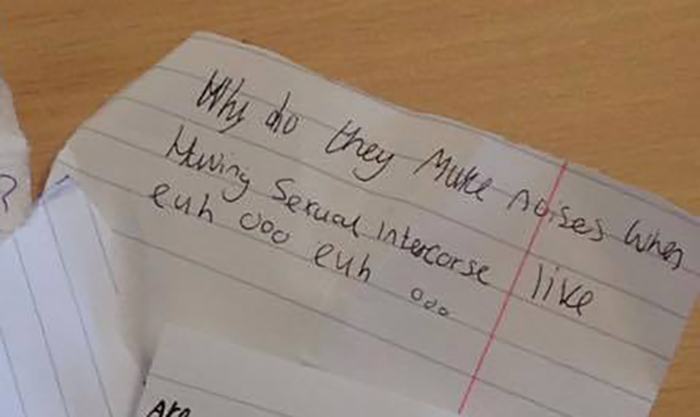 Why do they Make noises when
Having Sexual Intercorse like
euh ooo euh ooo
Are
?